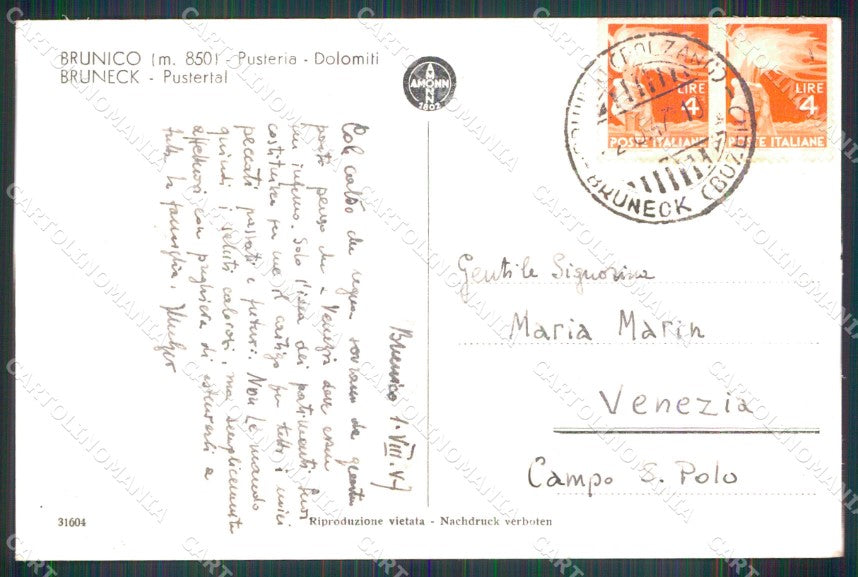 BRUNICO (m. 850) - Pusteria - Dolomiti
BRUNECK - Pustertal
AMONN
AMONN
1802
LIRE
4
POSTE ITALIANE
LIRE
4
POSTE ITALIANE
BRUNECK (BOLZANO)
Brunico 1.VIII.47
Col caldo che regna sovrano da questa
parte penso che a Venezia deve essere
un inferno. Solo l'idea dei patimenti
costituisce per me il castigo per tutti i miei
peccati passati e futuri. Non Le mando
quindi i saluti calorosi, ma semplicemente
affettuosi con preghiera di estenderli a
tutta la famiglia.
Gentile Signorina
Maria Marin
Venezia
Campo S. Polo
31604
Riproduzione vietata - Nachdruck verboten
CARTOLINOMANIA